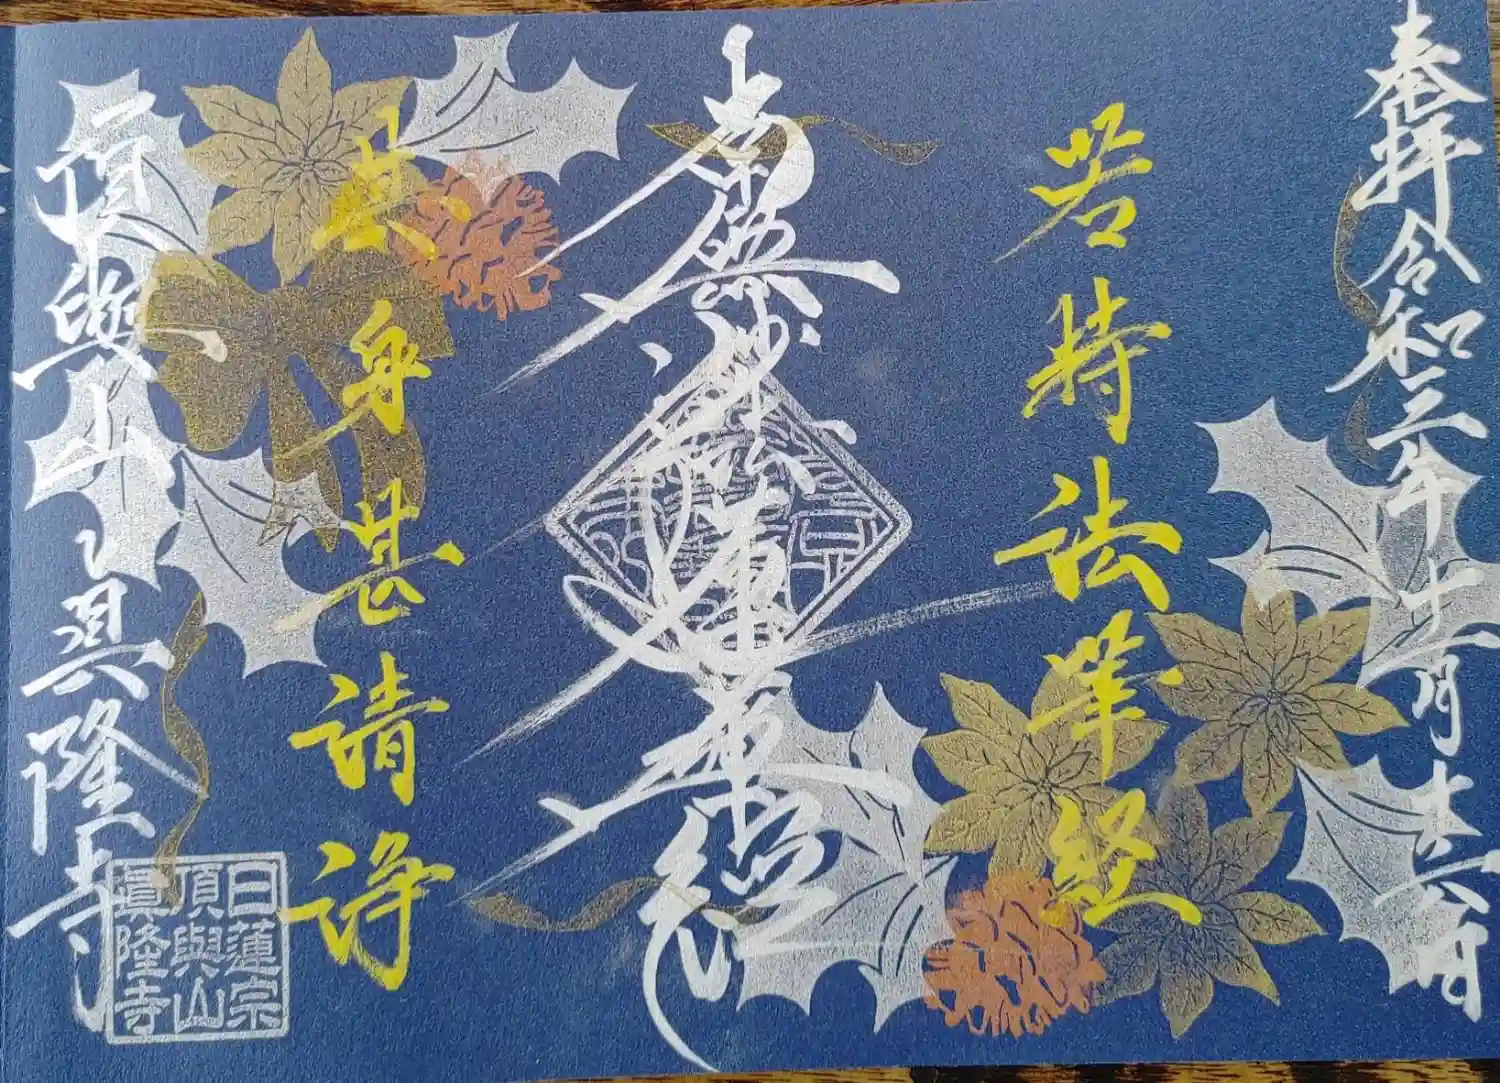 奉拝 令和三年十一月
若持法華経
南無妙法蓮華經
其身甚清浄
頂與山 眞隆寺
日蓮宗
頂與山
眞隆寺